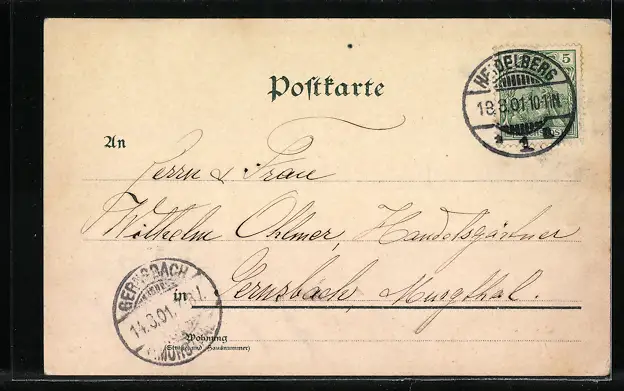 Postkarte
5
HEIDELBERG
13.3.01 10-11 N.
* 1 *
An
Herrn & Frau
Wilhelm Ohlmer, Handelsgärtner
in Gernsbach, Murgthal.
GERNSBACH
14.3.01.
Wohnung
(Straße und Hausnummer)